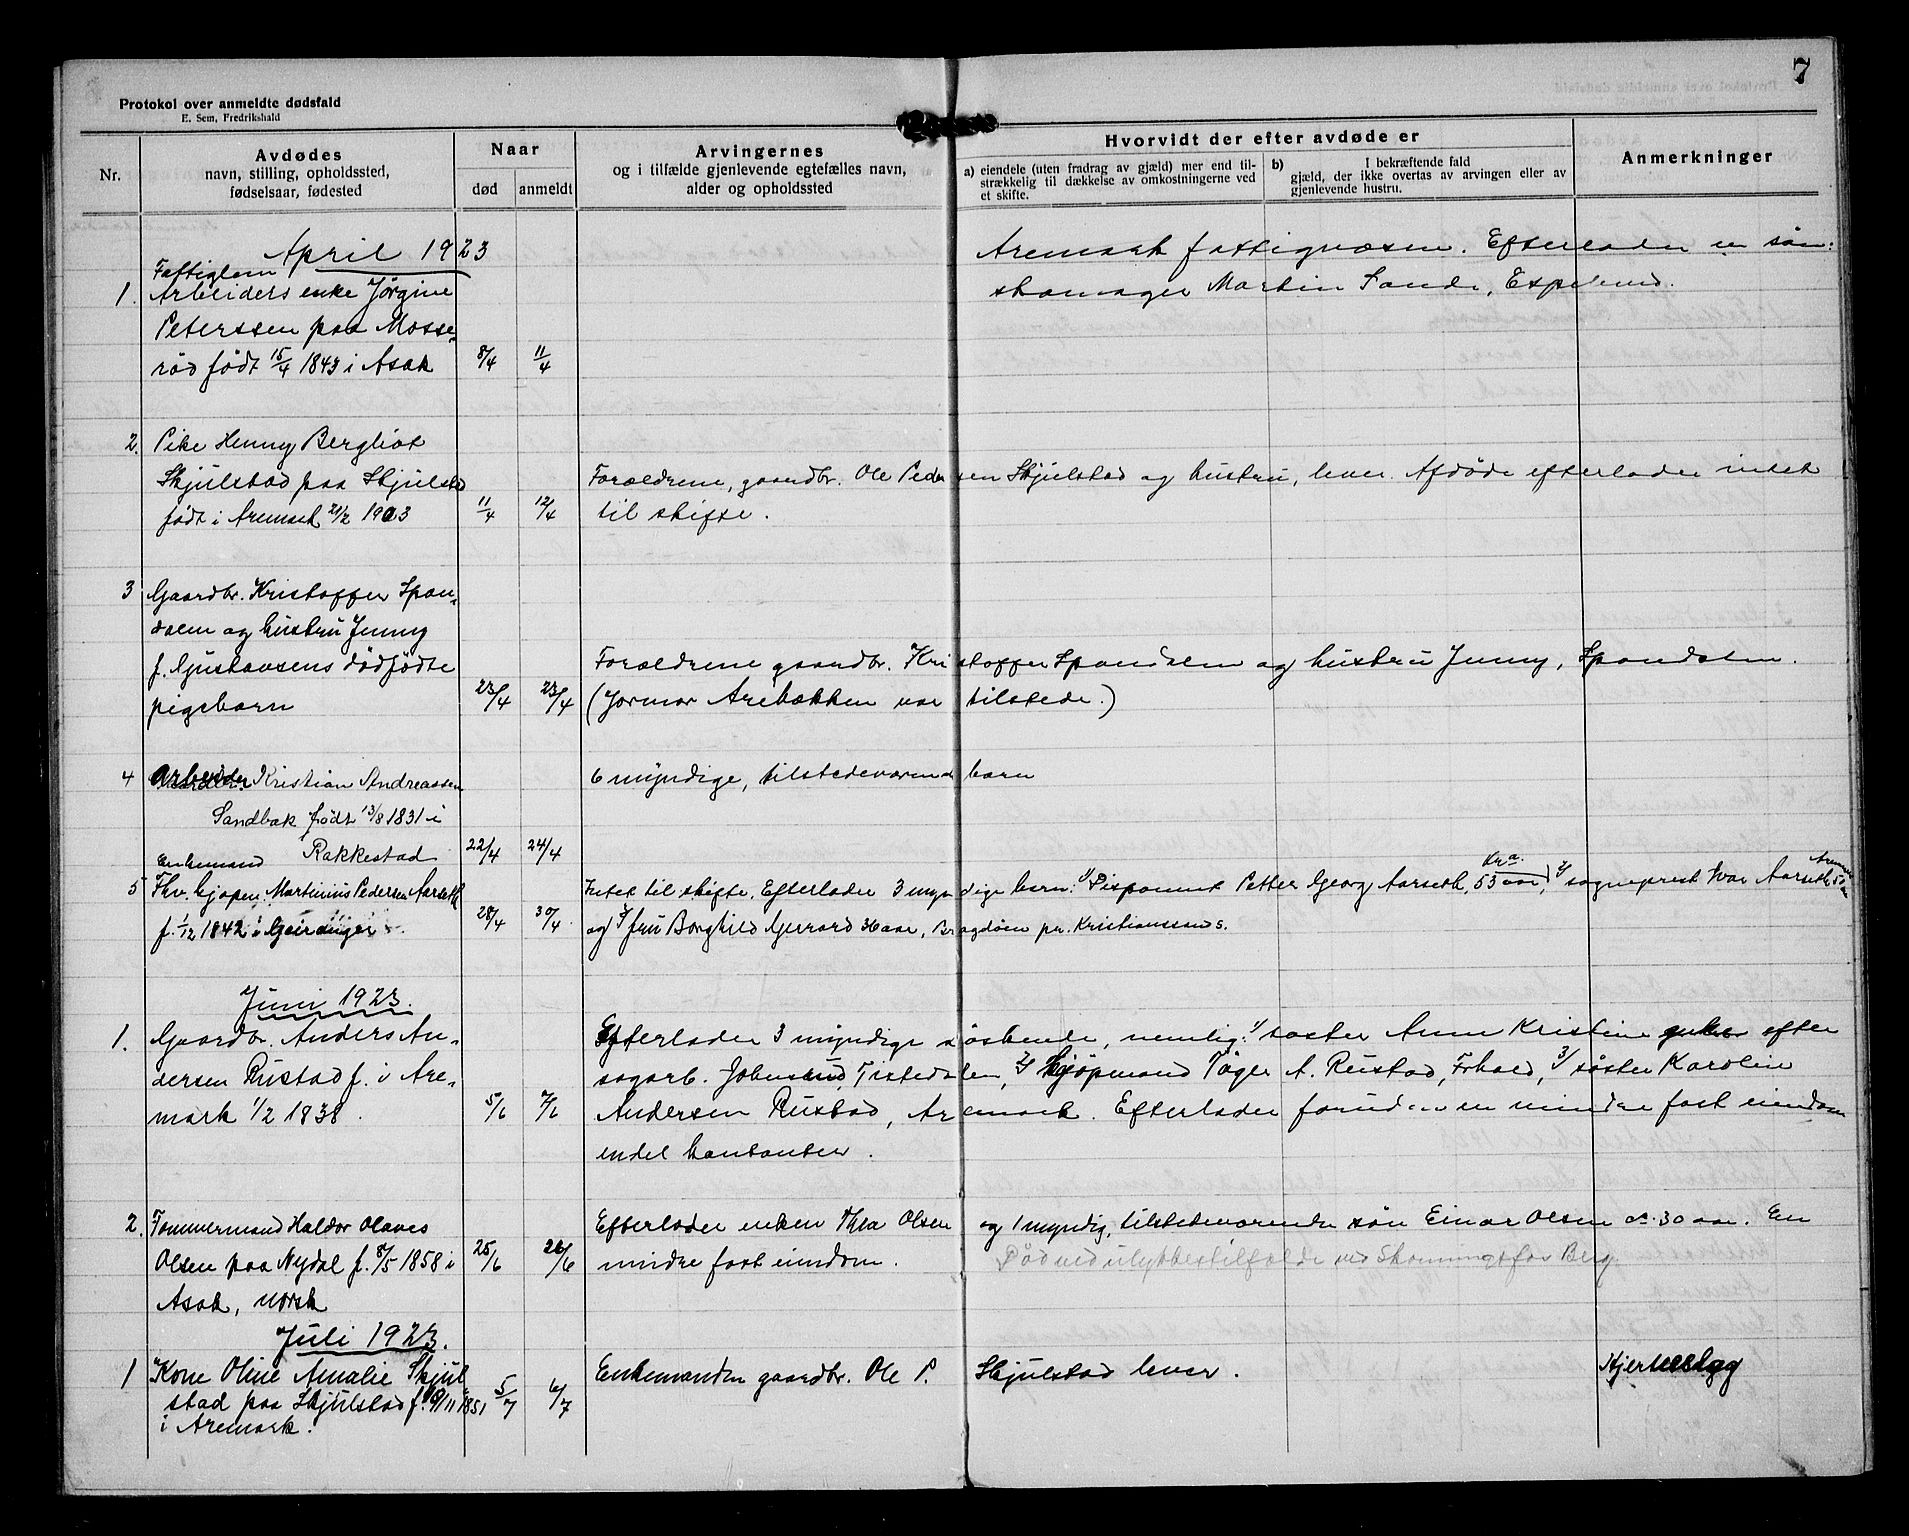 7
Protokol over anmeldte dødsfald
E. Sem, Fredrikshald
Nr.
Avdødes
navn, stilling, opholdssted,
fødselsaar, fødested
Naar
død
anmeldt
Arvingernes
og i tilfælde gjenlevende egtefælles navn,
alder og opholdssted
Hvorvidt der efter avdøde er
a) eiendele (uten fradrag av gjæld) mer end til-
strækkelig til dækkelse av omkostningerne ved
et skifte.
b) I bekræftende fald
gjæld, der ikke overtas av arvingen eller av
gjenlevende hustru.
Anmerkninger
April 1923
Fattiglem
1. Arbeiders enke Jørgine
Peterssen paa Mosse-
rød født 15/4 1843 i Asak 8/4 11/4
Aremark fattigvæsen. Efterlader en søn:
skomager Martin Sande,
2. Pike Henny Bergliot
Skjulstad paa Skjulstad
født i Aremark 21/2 1903 11/4 12/4
Forældrene, gaardbr. Ole Pedersen Skjulstad og hustru, lever. Afdøde efterlader intet
til skifte.
3 Gaardbr. Kristoffer Spon-
dalen og hustru Jenny
f. Gustavsens dødfødte
pigebarn 23/4 23/4
Forældrene gaardbr. Kristoffer Spondalen og hustru Jenny, Spondalen.
(Jormor Arebækken var tilstede.)
4 Kristian Andreassen
Sandbæk født 13/8 1831 i
Rakkestad 22/4 24/4
6 myndige, tilstedeværende barn
Enkemand
5 Fhv. kjøpm. Martinius Pedersen Aarseth
f. 1/12 1842 i 28/4 30/4
Intet til skifte. Efterlader 3 myndige børn: 1/ Disponent Petter Georg Aarseth, 53 aar, Kr.a. 2/ sogneprest Ivar Aarseth
og 3/ fru Borghild Gerrard 36 aar, Bragdøen pr. Kristianssand S.
Juni 1923.
1. Gaardbr. Anders An-
dersen Rustad f. i Are-
mark 1/2 1838. 5/6 7/6
Efterlader 3 myndige søskende, nemlig: 1/ søster Anne Kristine enke efter
sagarb. Johnsrud, Tistedalen, 2/ Kjøpmand Tøger A. Rustad, Frhald, 3/ søster Karoline
Andersen Rustad, Aremark. Efterlader foruden en mindre fast eiendom
endel kontanter.
2. Tømmermand Haldor Olaves
Olsen paa Nydal f. 8/5 1858 i
Asak, norsk 25/6 26/6
Efterlader enken Thea Olsen og 1 myndig, tilstedeværende søn Einar Olsen ca. 30 aar. En
mindre fast eiendom.
Død ved ulykkestilfælde ved Skonningsfos Berg.
Juli 1923.
1 Kone Oline Amalie Skjul-
stad paa Skjulstad f. 9/11 1851
i Aremark. 5/7 6/7
Enkemanden gaardbr. Ole P. Skjulstad lever.